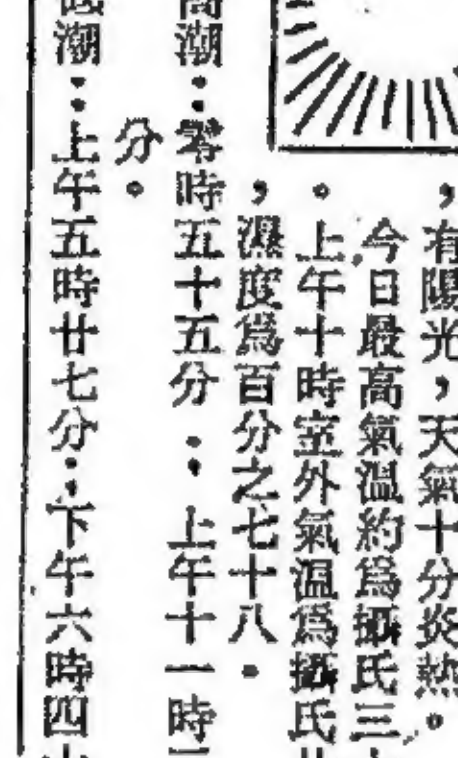 ，有陽光，天氣十分炎熱。
今日最高氣溫約爲攝氏三
。上午十時室外氣溫爲攝氏
，濕度爲百分之七十八。
高潮：零時五十五分；上午十一時
分。
低潮：上午五時廿七分；下午六時四